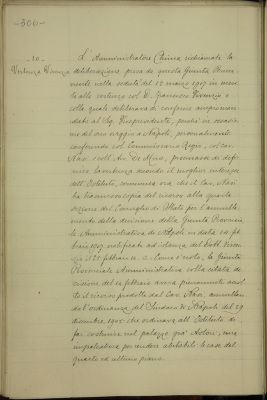 -300-
10.
Vertenza Vivenzio
L'Amministratore Cav. richiamata la
deliberazione presa da questa Giunta Comu
nella seduta del 15 marzo 1907 in merito
alla vertenza col D. Vivenzio e
colla quale deliberava di conferire ampio man
dato al Sig. Vicepresidente, perché in occasione
del suo viaggio a Napoli, personalmente
conferendo col Commissario Regio, col cav.
e coll'Avv. De procurasse di defi
nire la vertenza secondo il migliore interesse
dell'Istituto, comunica ora che il Cav.
ha trasmesso copia del ricorso alla quarta
sezione del Consiglio di Stato per l'annulla
mento della decisione della Giunta Provincia
le Amministrativa di Napoli in data 16 feb
braio 1907 notificata ad istanza del Dott. Viven
zio il 25 febbraio u. s. Come è noto, la Giunta
Provinciale Amministrativa colla citata de
cisione del 16 febbraio aveva pienamente accol
to il ricorso prodotto dal Cav. annullan
do l'ordinanza del Sindaco di Napoli del 29
dicembre 1905 che ordinava all'Istituto di
far costruire nel palazzo già una
impalcatura per rendere abitabile le case del
quarto ed ultimo piano.